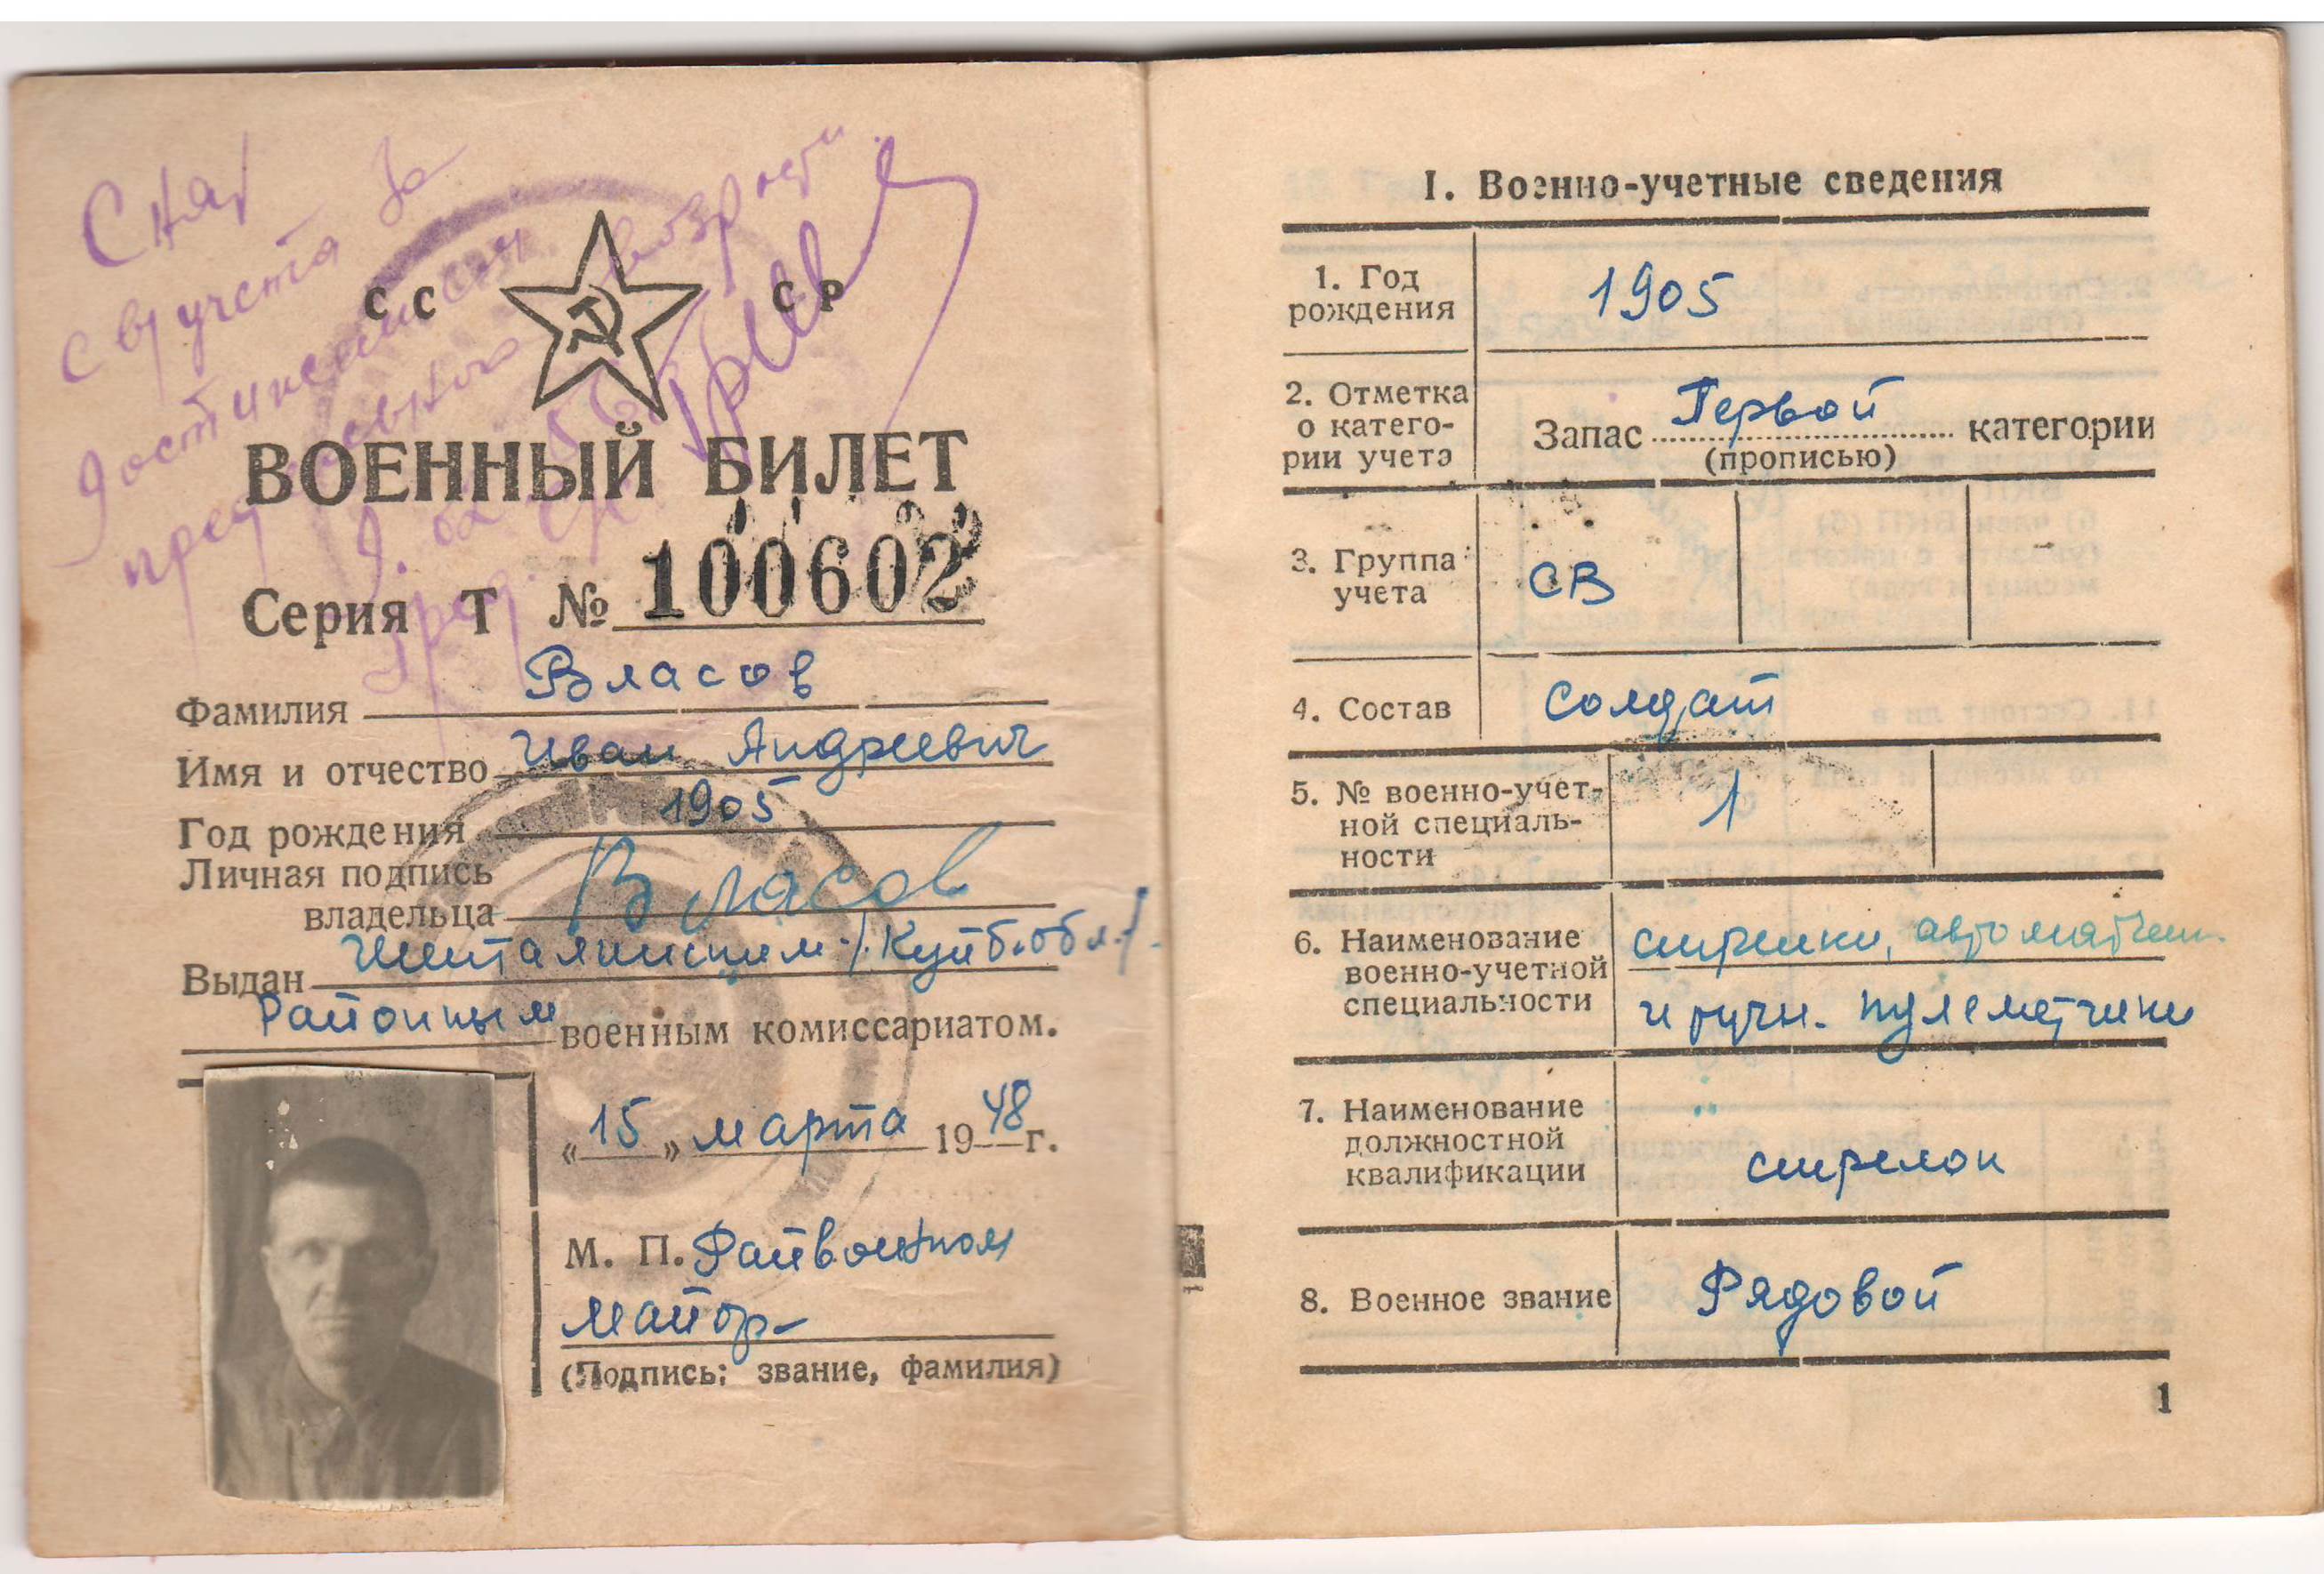 Снят
с в/учета за
достижением
предельного возраста
СССР
ВОЕННЫЙ БИЛЕТ
Серия Т № 100602
Фамилия Власов
Имя и отчество Иван Андреевич
Год рождения 1905
Личная подпись
владельца Власов
Выдан Шенталинским /Куйб. обл./
Районным военным комиссариатом.
«15» марта 1948 г.
М. П. Райвоенком
майор
(Подпись; звание, фамилия)
I. Военно-учетные сведения
1. Год
рождения
1905
2. Отметка
о катего-
рии учета
Запас Первой категории
(прописью)
3. Группа
учета
СВ
4. Состав
солдат
5. № военно-учет-
ной специаль-
ности
1
6. Наименование
военно-учетной
специальности
стрелки, автоматчики
и ручн. пулеметчики
7. Наименование
должностной
квалификации
стрелок
8. Военное звание
Рядовой
1